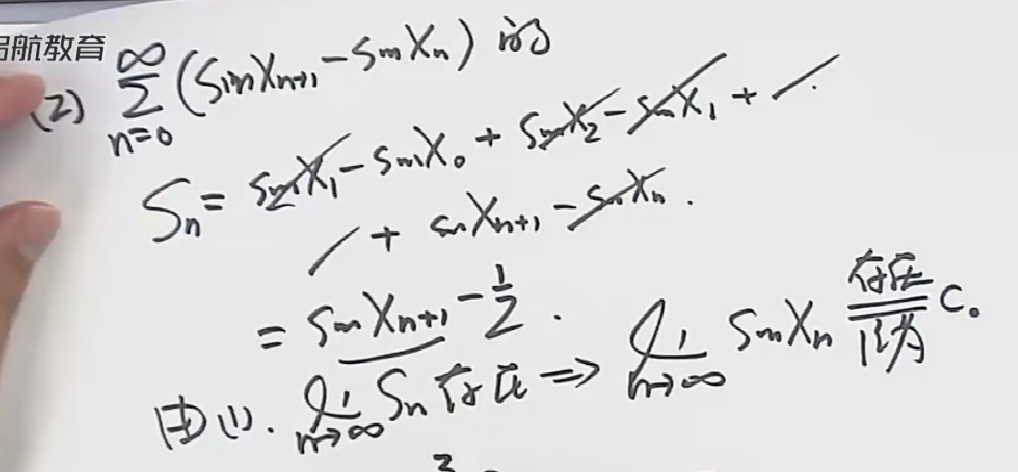 启航教育
(2) ∑_{n=0}^{∞} (sin X_{n+1} - sin X_n) 的
S_n = sin X_1 - sin X_0 + sin X_2 - sin X_1 + ⋯
⋯ + sin X_{n+1} - sin X_n .
= sin X_{n+1} - 1/2 .
由(1). lim_{n→∞} S_n 存在 ⇒ lim_{n→∞} sin X_n 存在 记为 c。